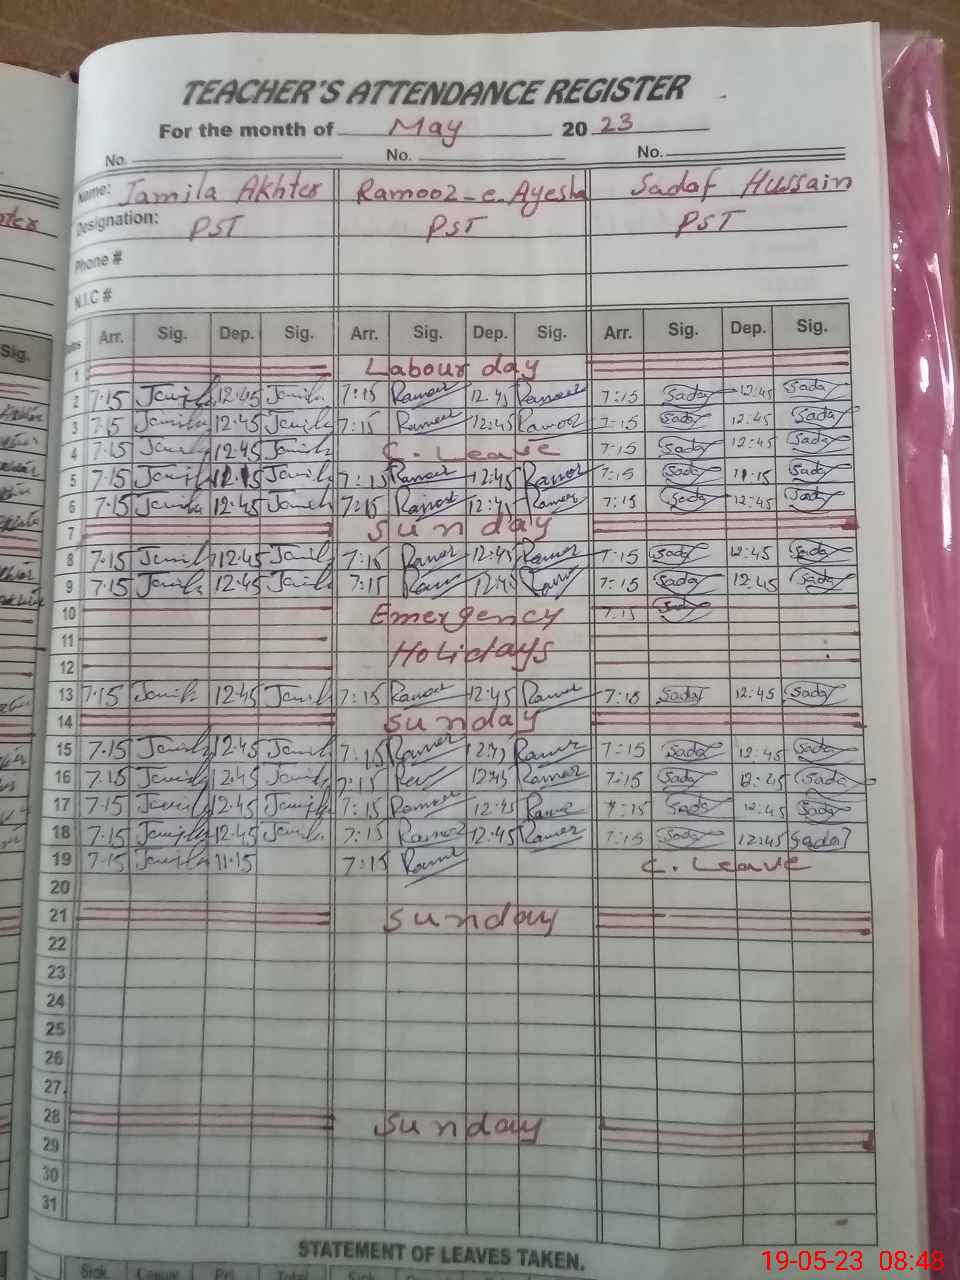 TEACHER'S ATTENDANCE REGISTER
For the month of May 20 23
No. No. No.
Name: Jamila Akhter Ramooz-e-Ayesha Sadaf Hussain
Designation: PST PST PST
Phone #
N.I.C #
Arr. Sig. Dep. Sig. Arr. Sig. Dep. Sig. Arr. Sig. Dep. Sig.
1 Labour day
2 7.15 Jamila 12.45 Jamila 7:15 Ramooz 12:45 Ramooz 7:15 Sadaf 12:45 Sadaf
3 7.15 Jamila 12.45 Jamila 7:15 Ramooz 12:45 Ramooz 7:15 Sadaf 12:45 Sadaf
4 7.15 Jamila 12.45 Jamila C. Leave 7:15 Sadaf 12:45 Sadaf
5 7.15 Jamila 11.15 Jamila 7:15 Ramooz 12:45 Ramooz 7:15 Sadaf 11:15 Sadaf
6 7.15 Jamila 12.45 Jamila 7:15 Ramooz 12:45 Ramooz 7:15 Sadaf 12:45 Sadaf
7 Sunday
8 7.15 Jamila 12.45 Jamila 7:15 Ramooz 12:45 Ramooz 7:15 Sadaf 12:45 Sadaf
9 7.15 Jamila 12.45 Jamila 7:15 Ramooz 12:45 Ramooz 7:15 Sadaf 12:45 Sadaf
10 Emergency 7:15 Sadaf
11 Holidays
12
13 7.15 Jamila 12.45 Jamila 7:15 Ramooz 12:45 Ramooz 7:15 Sadaf 12:45 Sadaf
14 Sunday
15 7.15 Jamila 12.45 Jamila 7:15 Ramooz 12:45 Ramooz 7:15 Sadaf 12:45 Sadaf
16 7.15 Jamila 12.45 Jamila 7:15 12:45 Ramooz 7:15 Sadaf 12:45 Sadaf
17 7.15 Jamila 12.45 Jamila 7:15 Ramooz 12:45 Ramooz 7:15 Sadaf 12:45 Sadaf
18 7.15 Jamila 12.45 Jamila 7:15 Ramooz 12:45 Ramooz 7:15 Sadaf 12:45 Sadaf
19 7.15 Jamila 11.15 7:15 Ramooz C. Leave
20
21 Sunday
22
23
24
25
26
27
28 Sunday
29
30
31
STATEMENT OF LEAVES TAKEN.
Sick Casual Pri. Total Sick
19-05-23 08:48